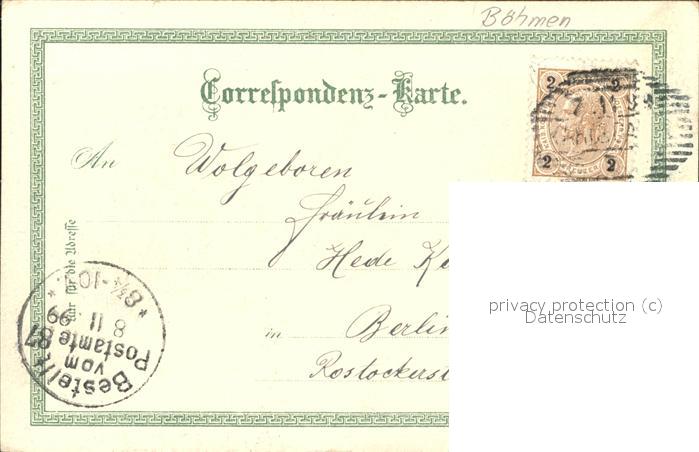 Böhmen
Correspondenz-Karte.
2 2
2 2
An Wolgeboren
Fräulein
Hede
in Berlin
Nur für die Adresse
Bestellt
vom
Postamte 87
8 11
99
8¼-10
privacy protection (c)
Datenschutz